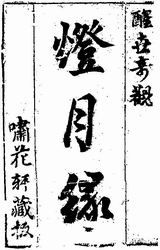 醒世奇觀
燈月緣
嘯花軒藏板